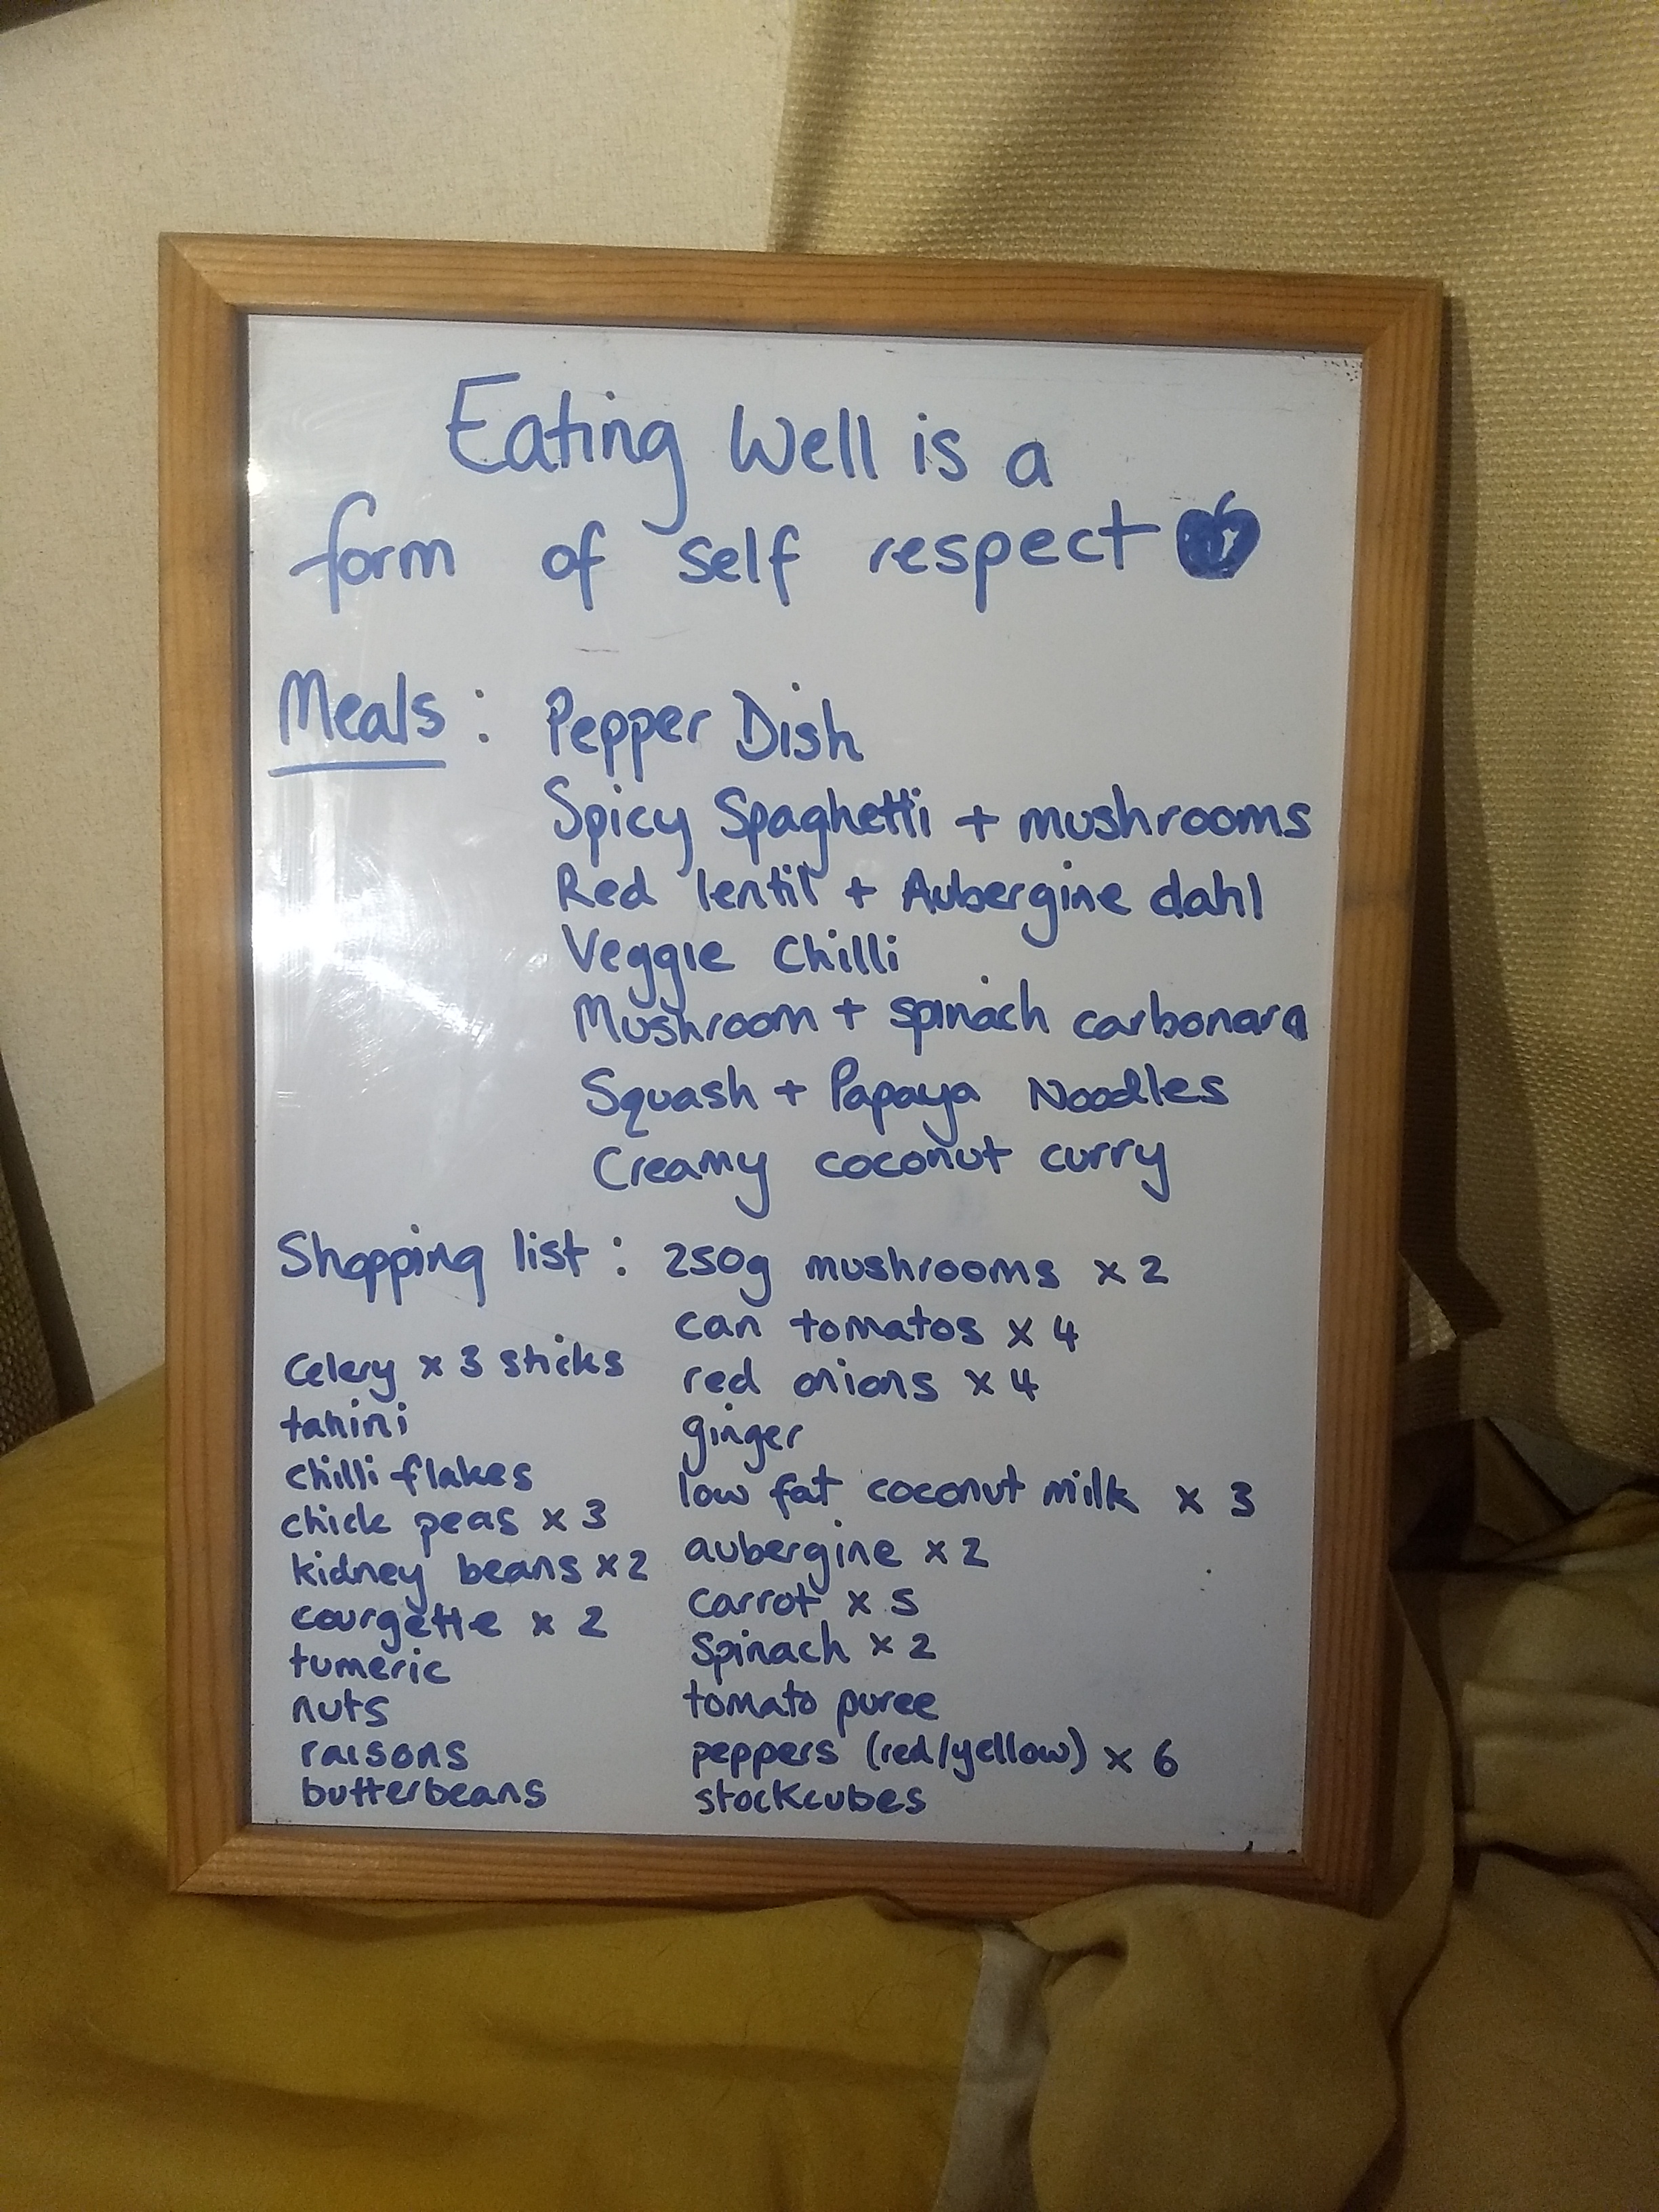 Eating Well is a
form of self respect
Meals : Pepper Dish
Spicy Spaghetti + mushrooms
Red lentil + Aubergine dahl
Veggie Chilli
Mushroom + spinach carbonara
Squash + Papaya Noodles
Creamy coconut curry
Shopping list : 250g mushrooms x 2
can tomatos x 4
red onions x 4
ginger
low fat coconut milk x 3
aubergine x 2
carrot x 5
spinach x 2
tomato puree
peppers (red/yellow) x 6
stockcubes
celery x 3 sticks
tahini
chilli flakes
chick peas x 3
kidney beans x 2
courgette x 2
tumeric
nuts
raisons
butterbeans